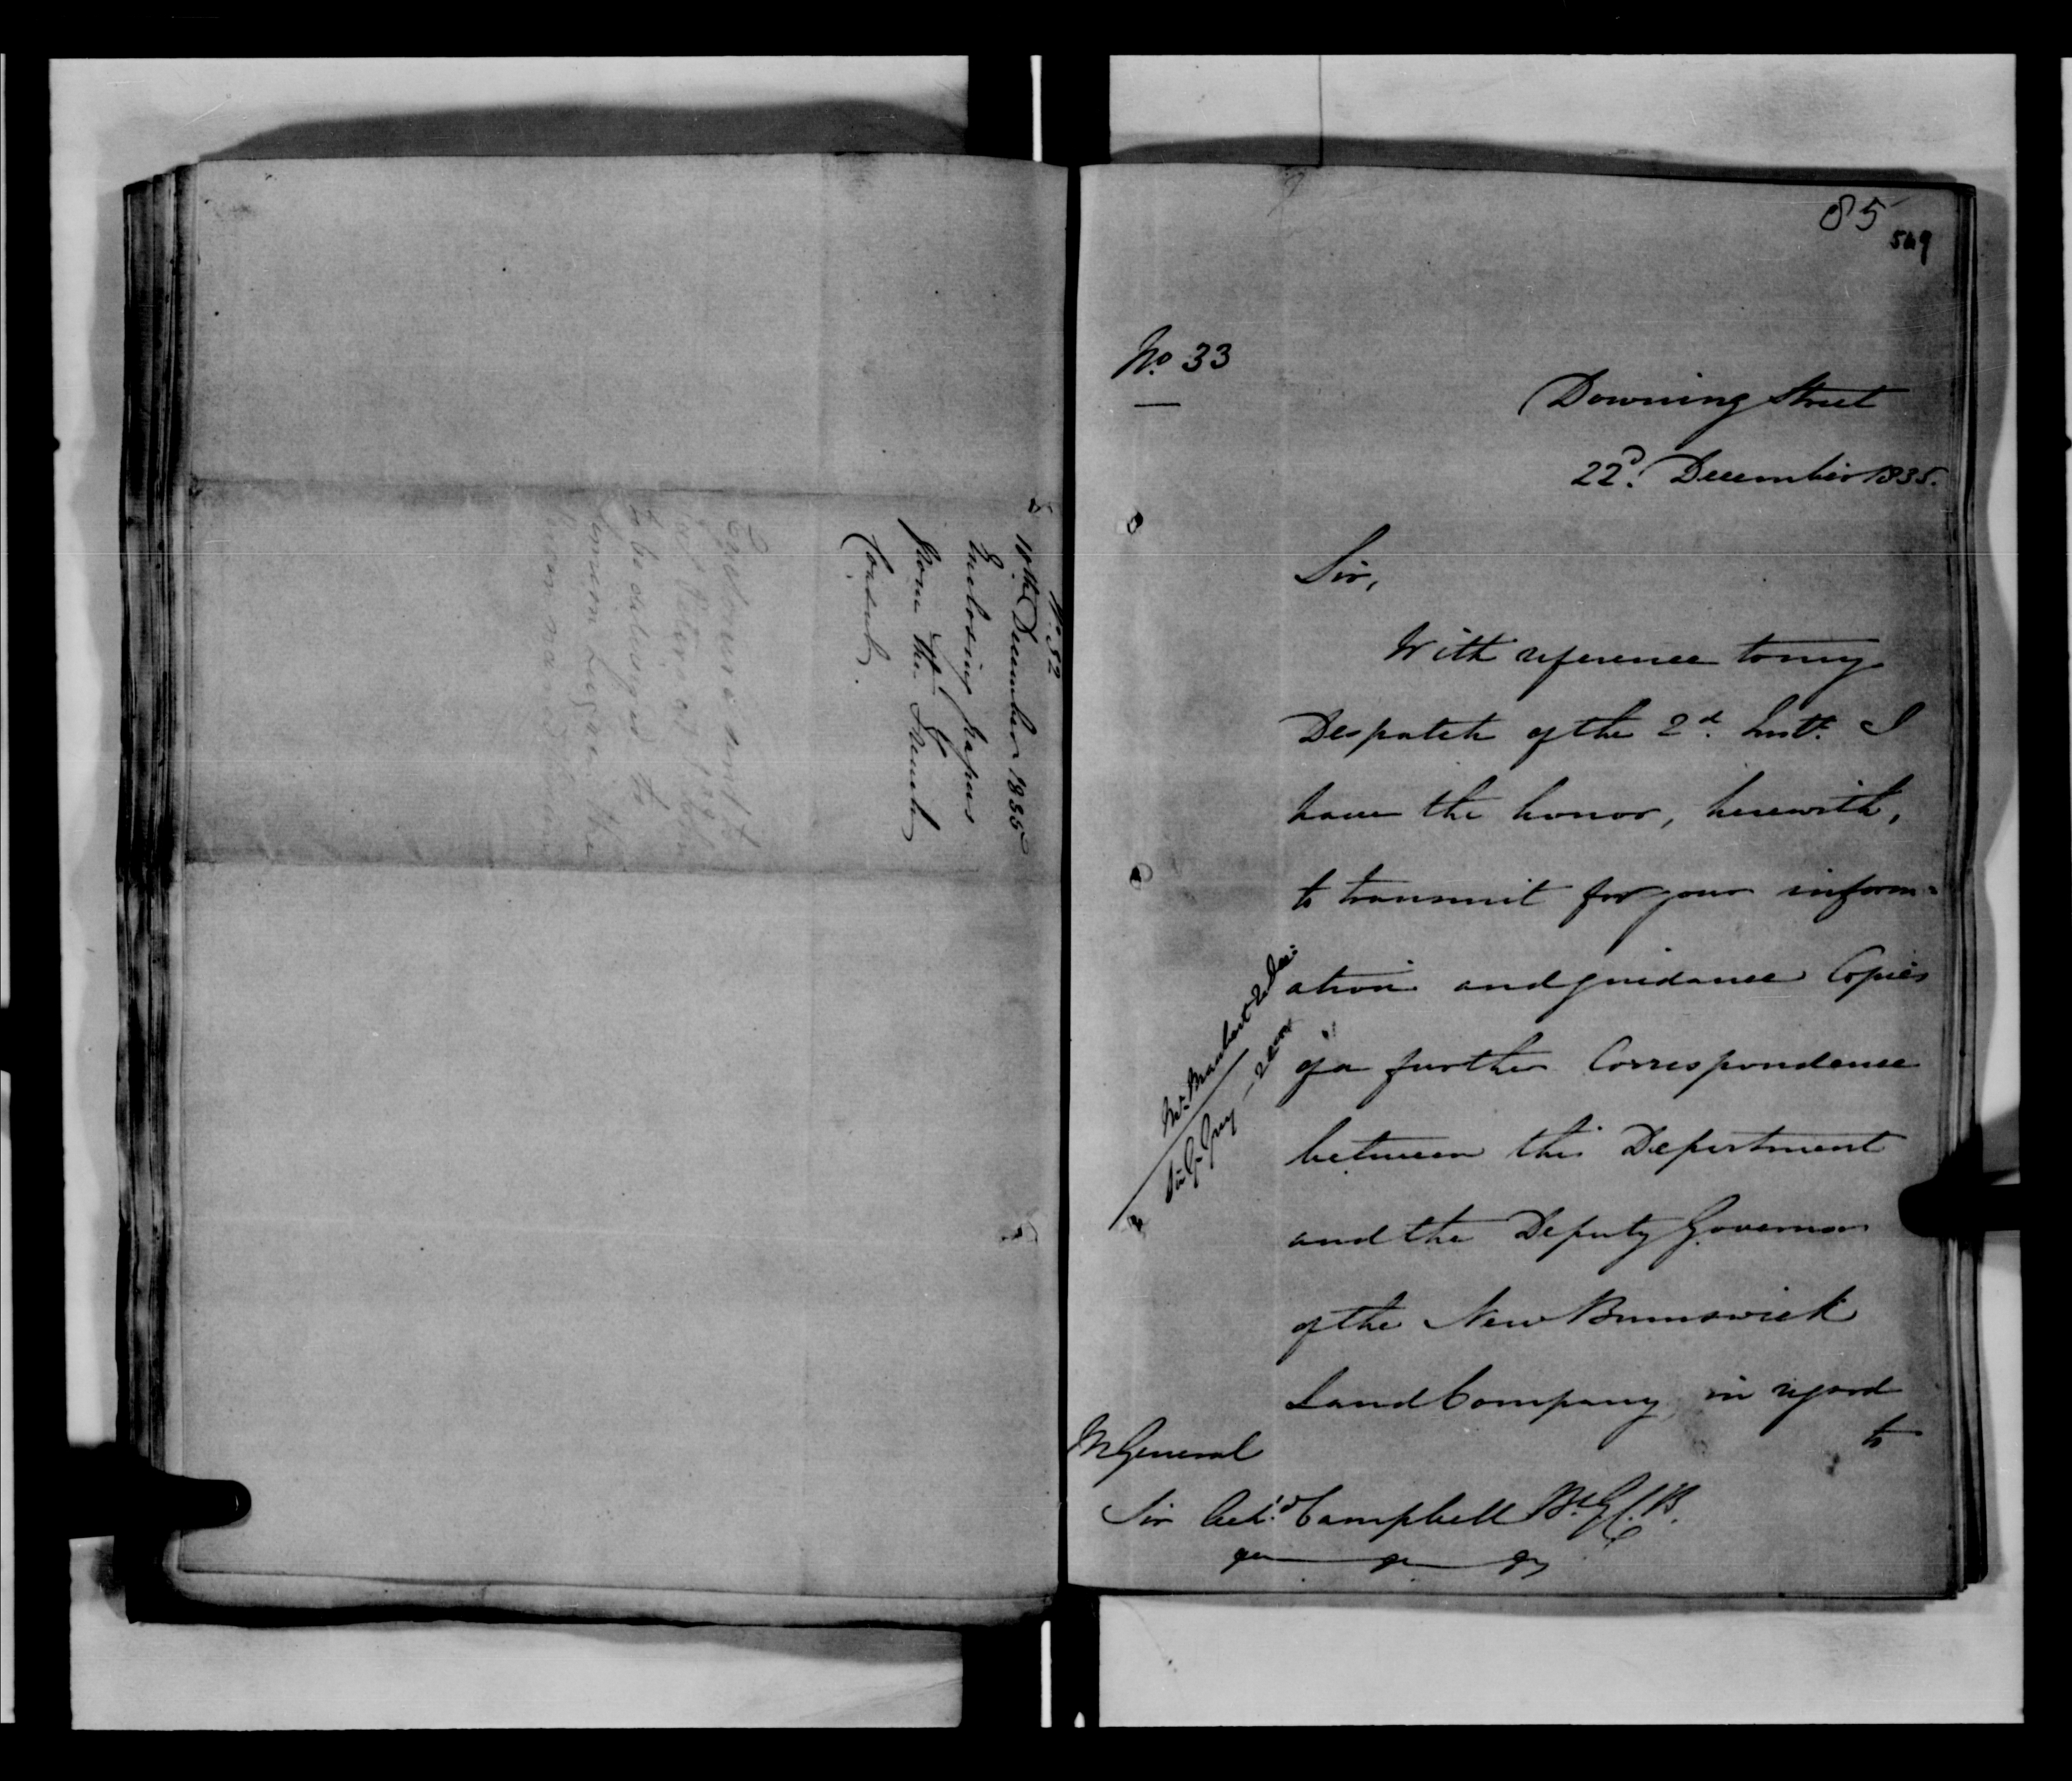 No. 32
10th December 1835
Enclosing papers
from the French
Consul.
85
549
No. 33
Downing Street
22d. December 1835.
Sir,
With reference to my
Despatch of the 2d. Inst. I
have the honor, herewith,
to transmit for your inform-
ation and guidance Copies
of a further Correspondence
between this Department
and the Deputy Governor
of the New Brunswick
Land Company, in regard
to
Sir G. Grey
M General
Sir Archd. Campbell Bt. G.C.B.